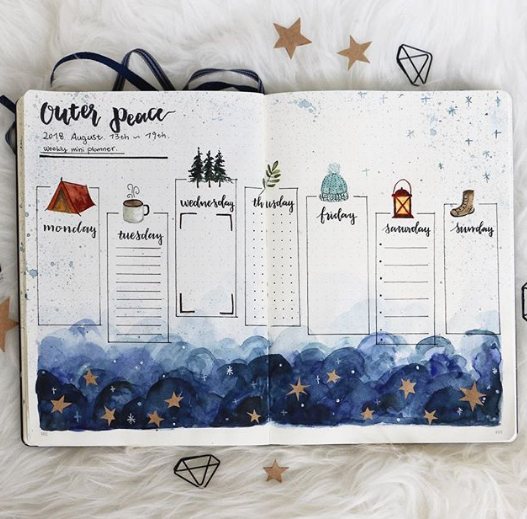 Outer Peace
2018. August. 13th ~ 19th.
Weekly mini planner.
monday
tuesday
wednesday
thusday
friday
saturday
sunday